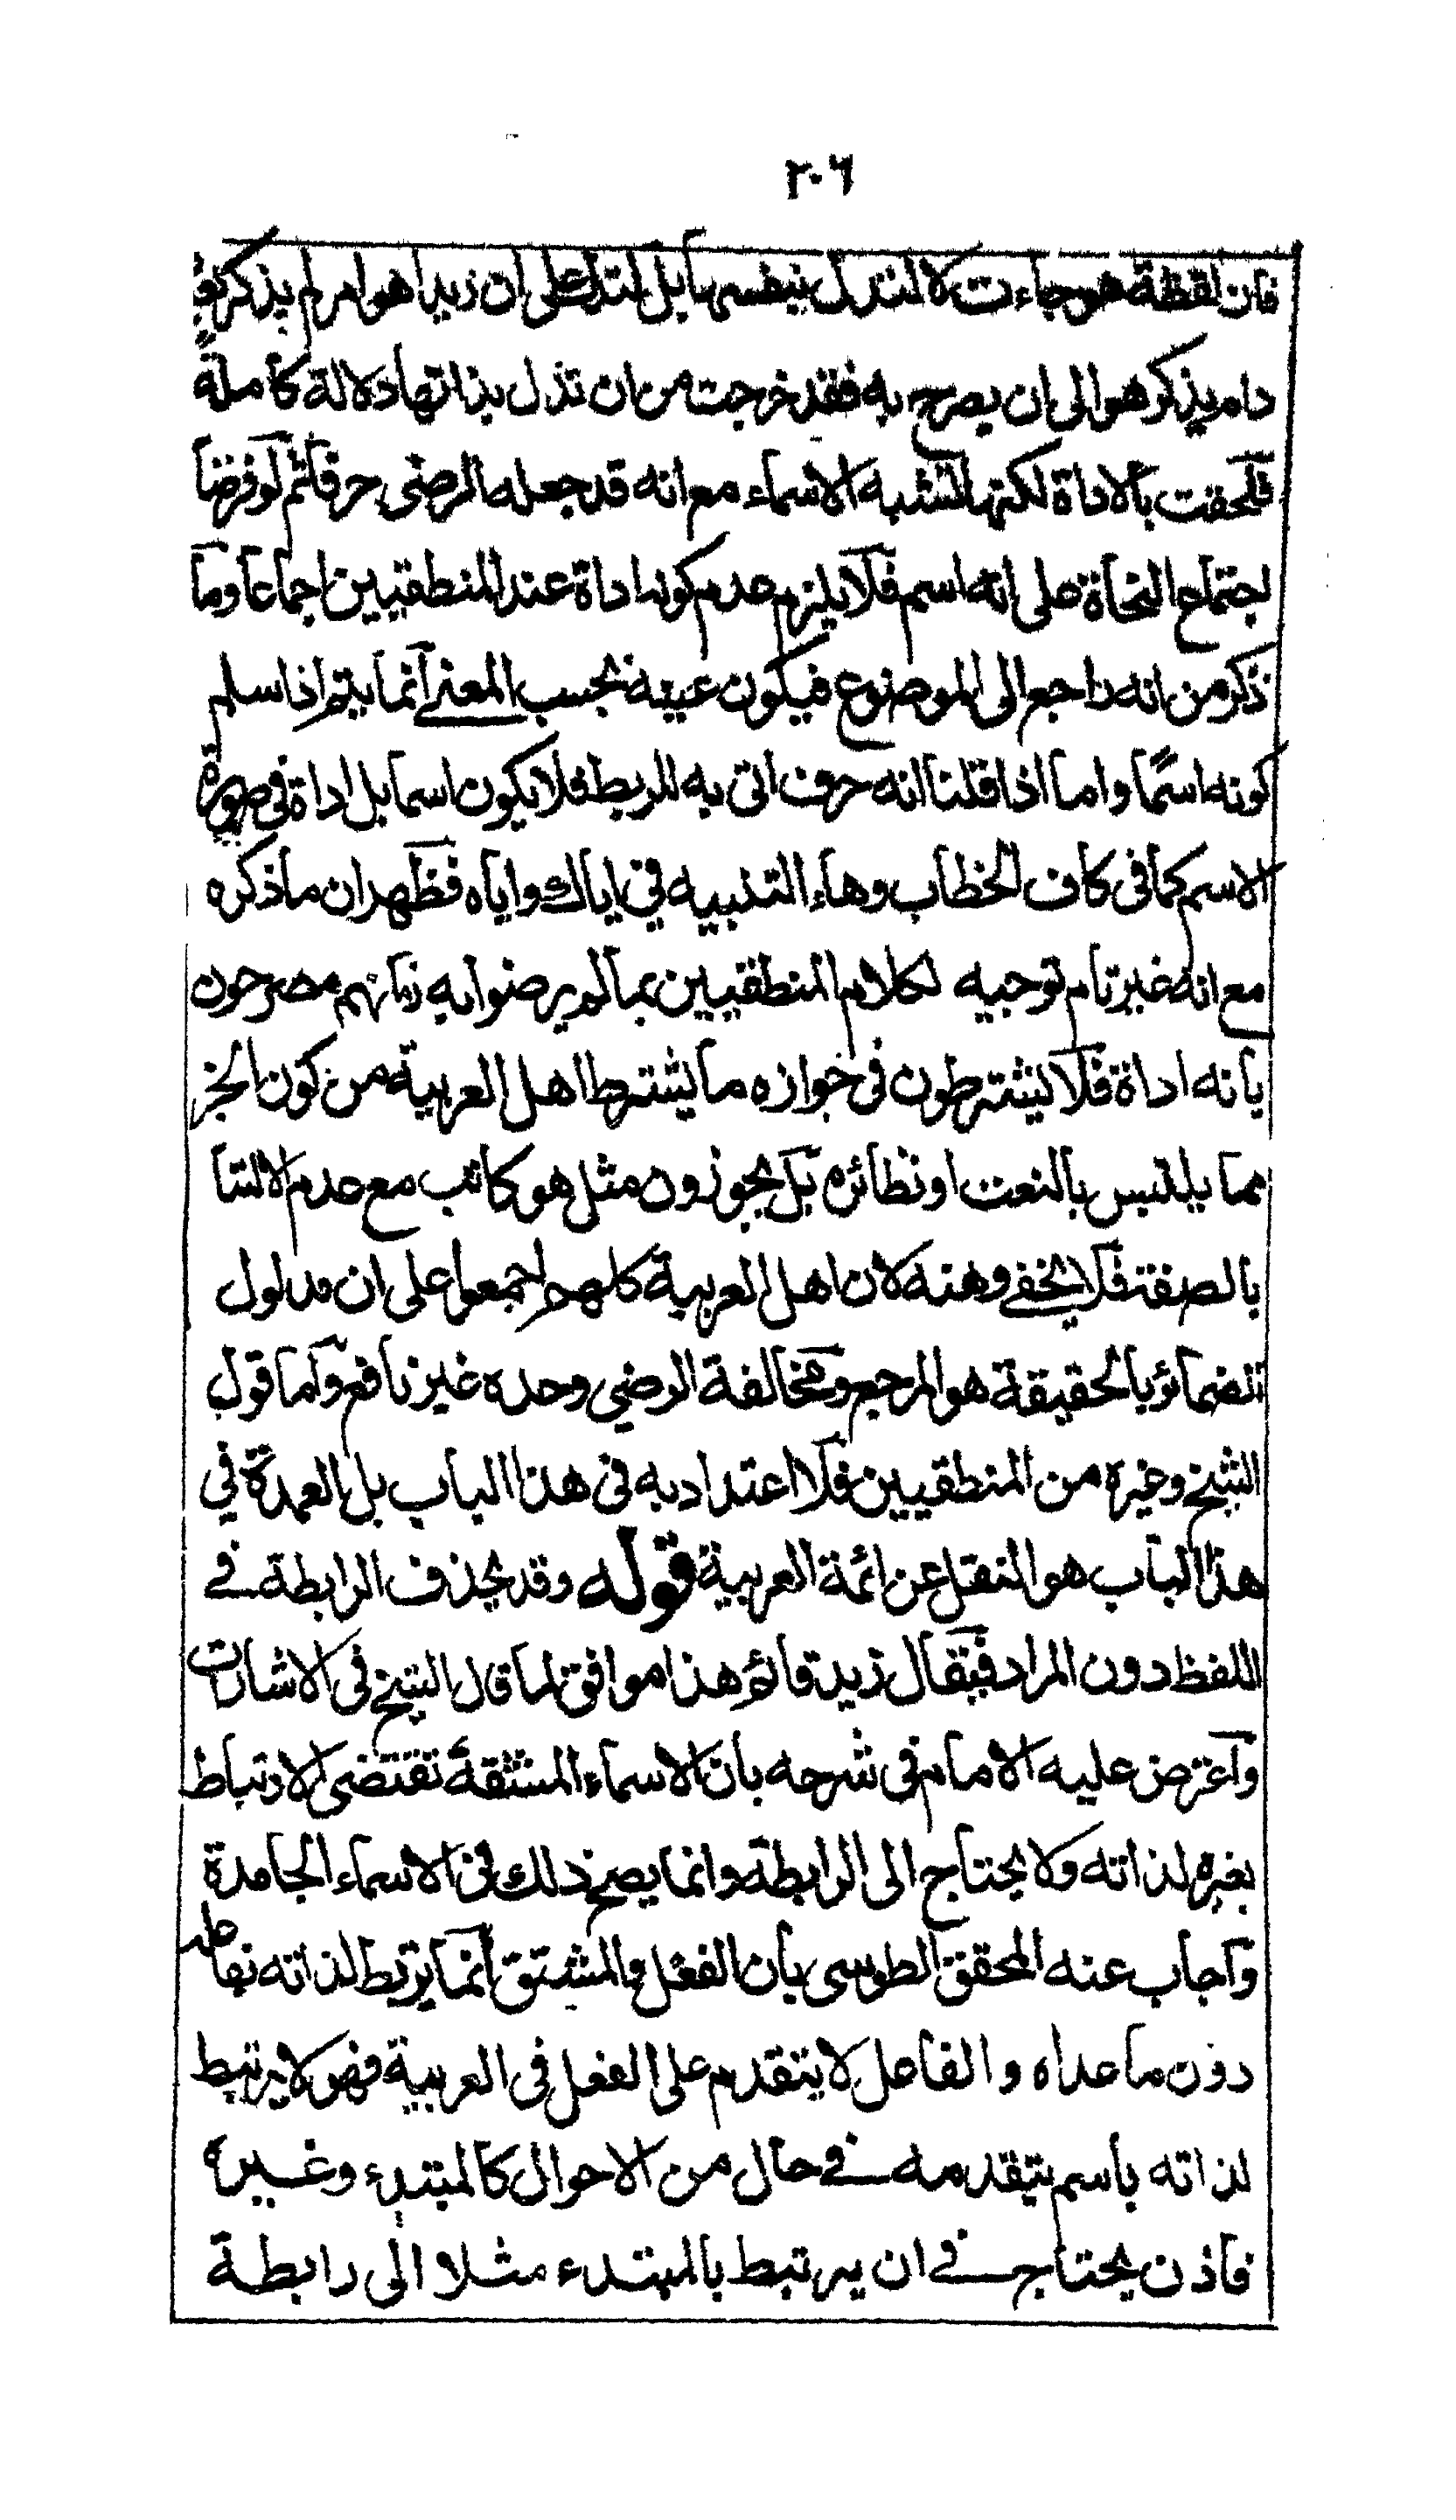 ٢٠٦
فان لفظة هو جاءت لا لتدل بنفسها بل لتدل على ان زيدا هو امر لم يذكر بعد
دام يذكر هو الى ان يصرح به فقد خرجت من ان تدل بذاتها دلالة كاملة
فلحقت بالاداة لكنها تشبه الاسماء مع انه قد جعله الرضى حرفا ثم لو فرضنا
اجتماع النحاة على انه اسم فلا يلزم عدم كونه اداة عند المنطقيين اجماعا وما
ذكر من انه راجع الى الموضوع فيكون عينه بحسب المعنى انما يتم اذا سلم
كونه اسما واما اذا قلنا انه حرف اتى به للربط فلا يكون اسما بل اداة فى صورة
الاسم كما فى كاف الخطاب وهاء التنبيه في اياك واياه فظهر ان ما ذكره
مع انه غير تام توجيه لكلام المنطقيين بما لم يرضوا به فانهم مصرحون
بانه اداة فلا يشترطون فى جوازه ما يشترط اهل العربية من كون الخبر
مما يلتبس بالنعت او نظائره بل يجوزون مثل هو كاتب مع عدم الالتبا
بالصفة فلا يخفى وهنه لان اهل العربية كلهم اجمعوا على ان مدلول
الضمائر بالحقيقة هو المرجع ومخالفة الرضي وحده غير نافع واما قول
الشيخ وغيره من المنطقيين فلا اعتداد به فى هذا الباب بل العمدة في
هذا الباب هو النقل عن ائمة العربية قوله وقد يحذف الرابطة فى
اللفظ دون المراد فيقال زيد قائم هذا موافق لما قال الشيخ فى الاشارات
واعترض عليه الامام فى شرحه بان الاسماء المشتقة تقتضى الارتباط
بغيره لذاته ولا يحتاج الى الرابطة وانما يصح ذلك فى الاسماء الجامدة
واجاب عنه المحقق الطوسى بان الفعل والمشتق انما يرتبط لذاته بفاعله
دون ما عداه والفاعل لا يتقدم على الفعل فى العربية فهو لا يرتبط
لذاته باسم يتقدمه فى حال من الاحوال كالمبتدء وغيره
فاذن يحتاج فى ان يرتبط بالمبتدء مثلا الى رابطة